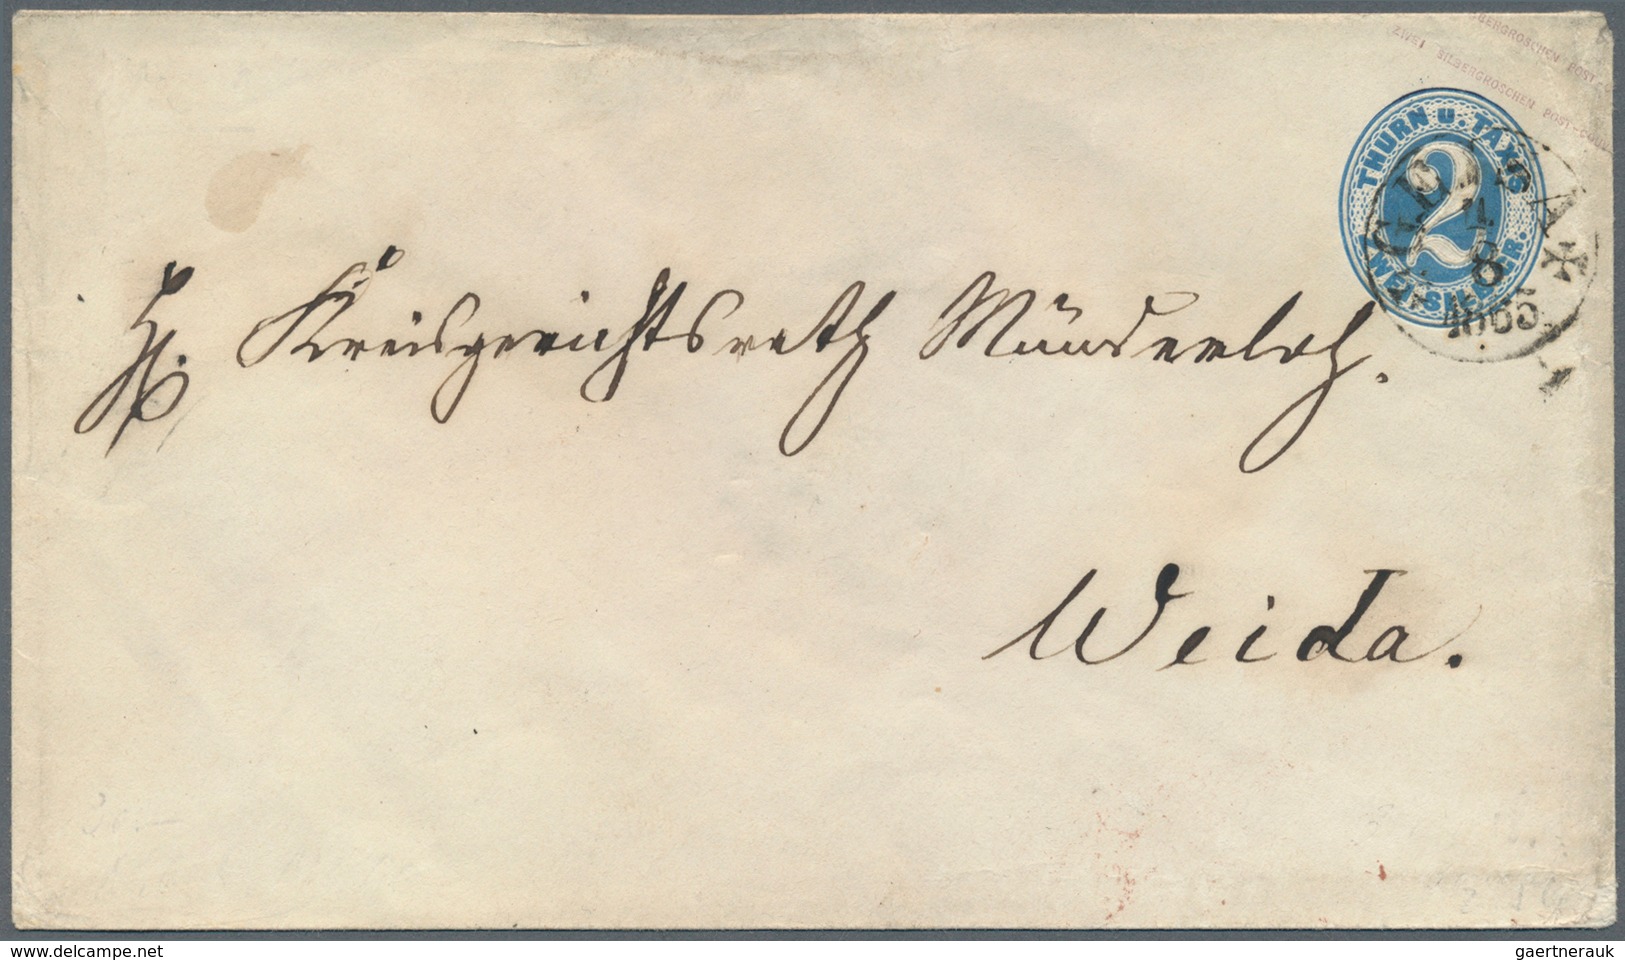 SILBERGROSCHEN POST-C
ZWEI SILBERGROSCHEN POST-COUV
THURN U. TAXIS
2
ZWEI SILB. GR.
8
H. Kreisgerichtsrath Münderloh.
Weida.
www.delcampe.net
gaertnerauk